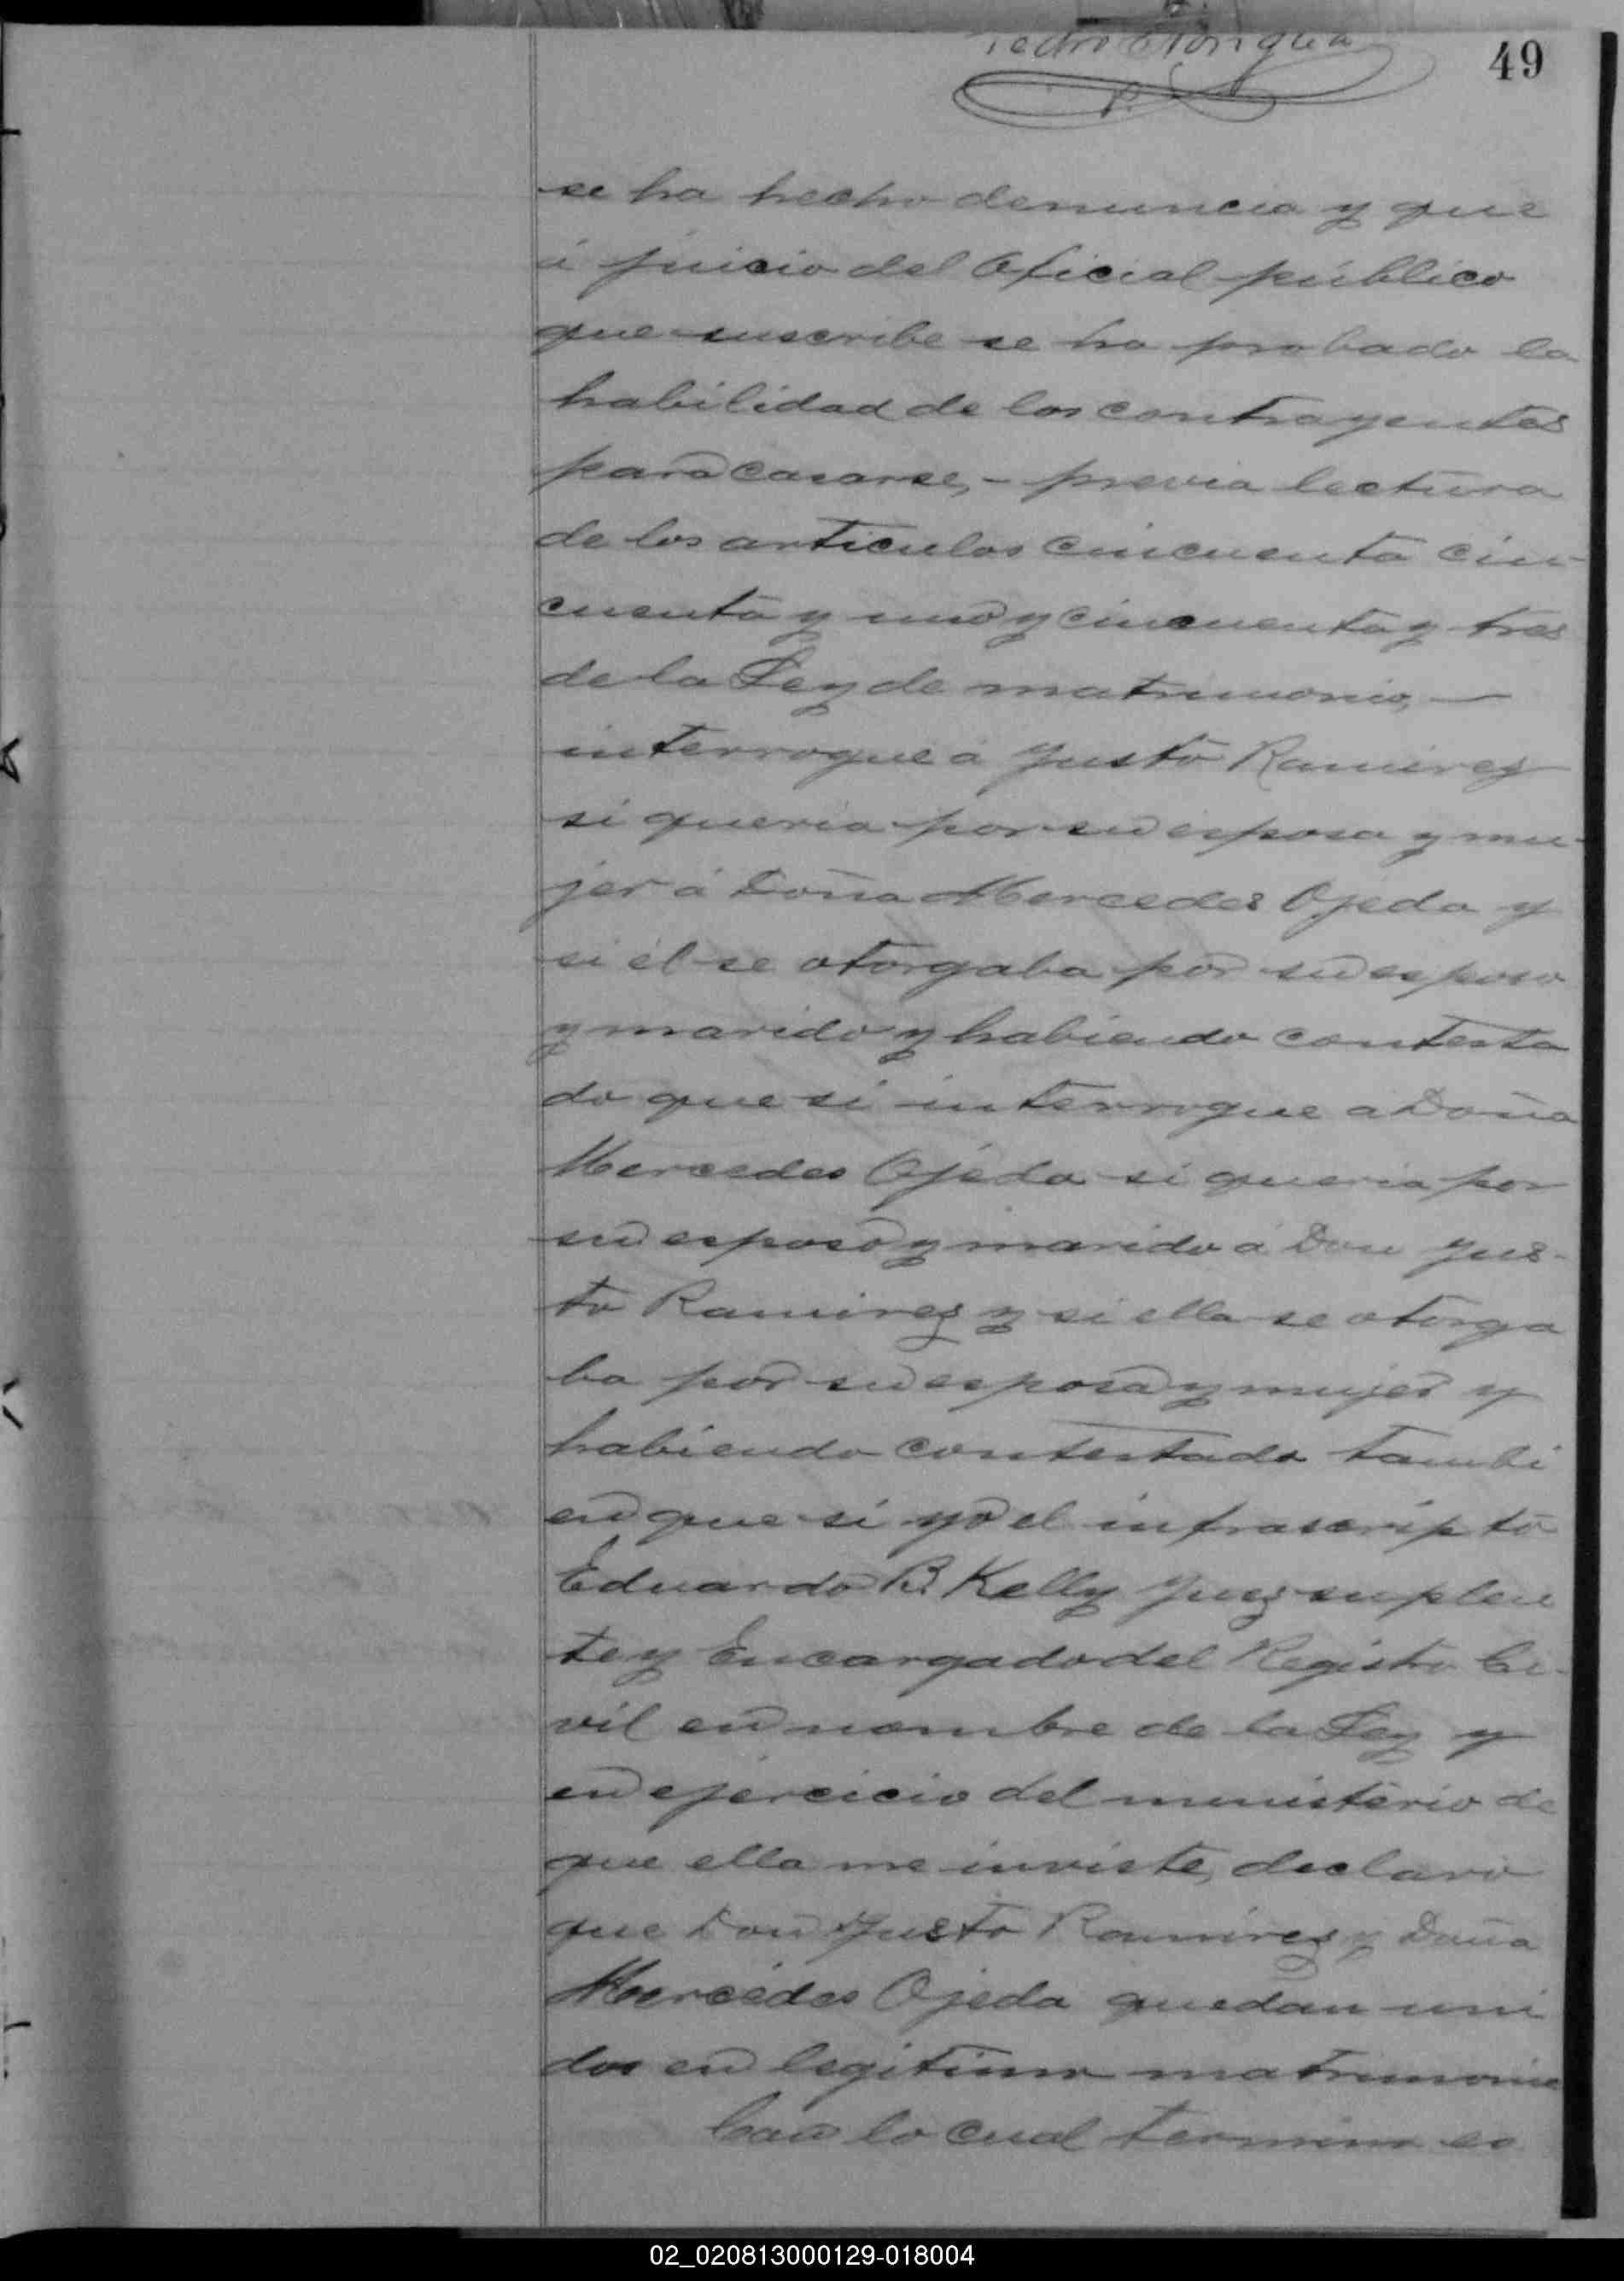 49
Pedro
se ha hecho denuncia y que
á juicio del Oficial público
que suscribe se ha probado la
habilidad de los contrayentes
para casarse, - previa lectura
de los artículos cincuenta cin-
cuenta y uno y cincuenta y tres
de la Ley de matrimonio, —
interrogue á Justo Ramirez
si queria por su esposa y mu-
jer á Doña Mercedes Ojeda y
si él se otorgaba por su esposo
y marido y habiendo contesta
do que si interrogue a Doña
Mercedes Ojeda si queria por
su esposo y marido á Don Jus-
to Ramirez y si ella se otorga
ba por su esposa y mujer y
habiendo contestado tambi
en que si yo el infrascripto
Eduardo B. Kelly Juez suplen
te y Encargado del Registro Ci-
vil en nombre de la Ley y
en ejercicio del ministerio de
que ella me inviste, declaro
que Don Justo Ramirez y Doña
Mercedes Ojeda quedan uni
dos en legitimo matrimonio
Con lo cual termino es
02_020813000129-018004